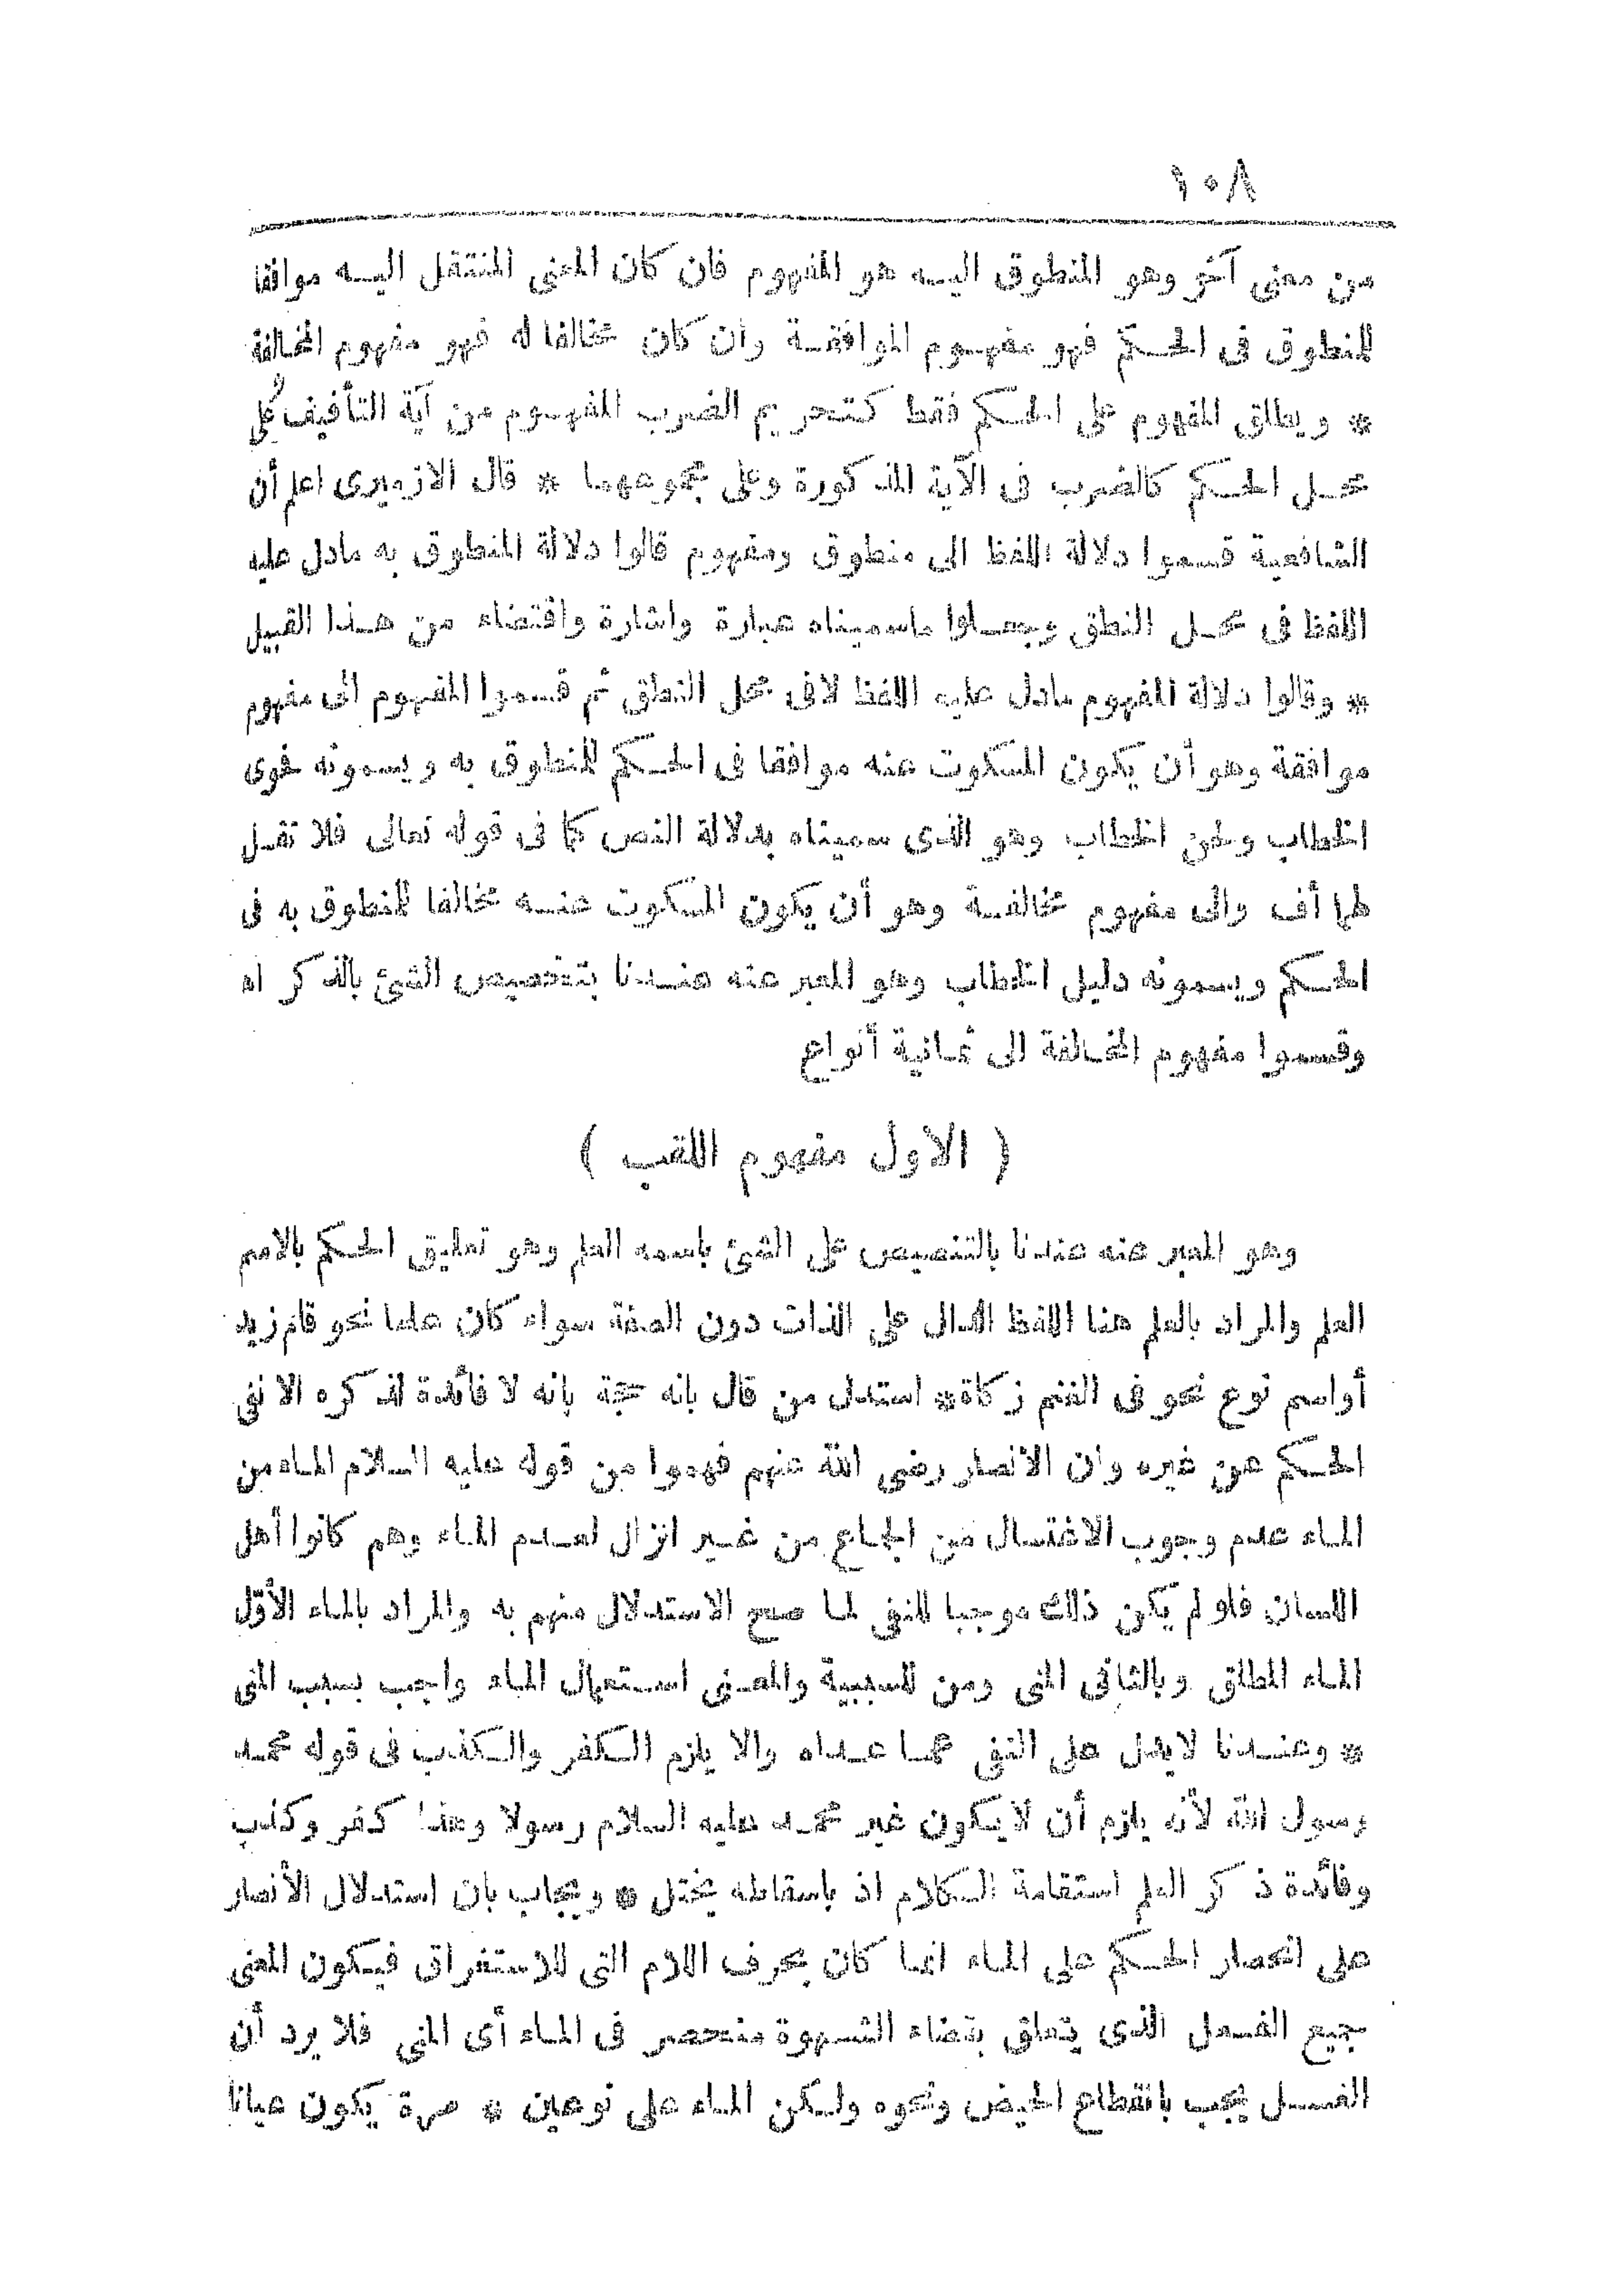 ١٠٨
من معنى آخر وهو المنطوق اليـه هو المفهوم فان كان المعنى المنتقل اليـه موافقا
للمنطوق فى الحـكم فهو مفهـوم الموافقـة وان كان مخالفا له فهو مفهوم المخالفة
* ويطلق المفهوم على الحـكم فقط كتحريم الضرب المفهـوم من آية التأفيف وعلى
محـل الحـكم كالضرب فى الآية المذكورة وعلى مجموعهما * قال الازميرى اعلم أن
الشافعية قسموا دلالة اللفظ الى منطوق ومفهوم قالوا دلالة المنطوق به مادل عليه
اللفظ فى محـل النطق وجعـلوا ماسميناه عبارة واشارة واقتضاء من هـذا القبيل
* وقالوا دلالة المفهوم مادل عليه اللفظ لافى محل النطق ثم قسموا المفهوم الى مفهوم
موافقة وهو أن يكون المسكوت عنه موافقا فى الحـكم للمنطوق به ويسمونه فحوى
الخطاب ولحن الخطاب وهو الذى سميناه بدلالة النص كما فى قوله تعالى فلا تقـل
لهما أف والى مفهوم مخالفـة وهو أن يكون المسكوت عنـه مخالفا للمنطوق به فى
الحـكم ويسمونه دليل الخطاب وهو المعبر عنه عنـدنا بتخصيص الشئ بالذكر اه
وقسموا مفهوم المخـالفة الى ثمـانية أنواع
( الاول مفهوم اللقب )
وهو المعبر عنه عندنا بالتنصيص على الشئ باسمه العلم وهو تعليق الحـكم بالاسم
العلم والمراد بالعلم هنا اللفظ الدال على الذات دون الصفة سواء كان علما نحو قام زيد
أواسم نوع نحو فى الغنم زكاة * استدل من قال بانه حجة بانه لا فائدة لذكره الا نفى
الحـكم عن غيره وان الانصار رضى الله عنهم فهموا من قوله عليه السلام المـاء من
المـاء عدم وجوب الاغتسال من الجمـاع من غـير انزال لعـدم المـاء وهم كانوا أهل
اللسان فلولم يكن ذلك موجبا للنفى لمـا صح الاستدلال منهم به والمراد بالمـاء الأول
المـاء المطلق وبالثانى المنى ومن للسببية والمعـنى استـعمال المـاء واجب بسبب المنى
* وعنـدنا لايدل على النفى عمـا عـداه والا يلزم الـكفر والـكذب فى قوله محمـد
رسول الله لأنه يلزم أن لايـكون غير محمـد عليه السلام رسولا وهذا كفر وكذب
وفائدة ذكر العلم استقامة الـكلام اذ باسقاطه يختل * ويجاب بان استدلال الأنصار
على انحصار الحـكم على المـاء انمـا كان بحرف اللام التى للاستغراق فيـكون المعنى
جميع الغسـل الذى يتعلق بقضاء الشـهوة منحصر فى المـاء أى المنى فلا يرد أن
الغسـل يجب بانقطاع الحيض ونحوه ولـكن المـاء على نوعين * مرة يكون عيانا